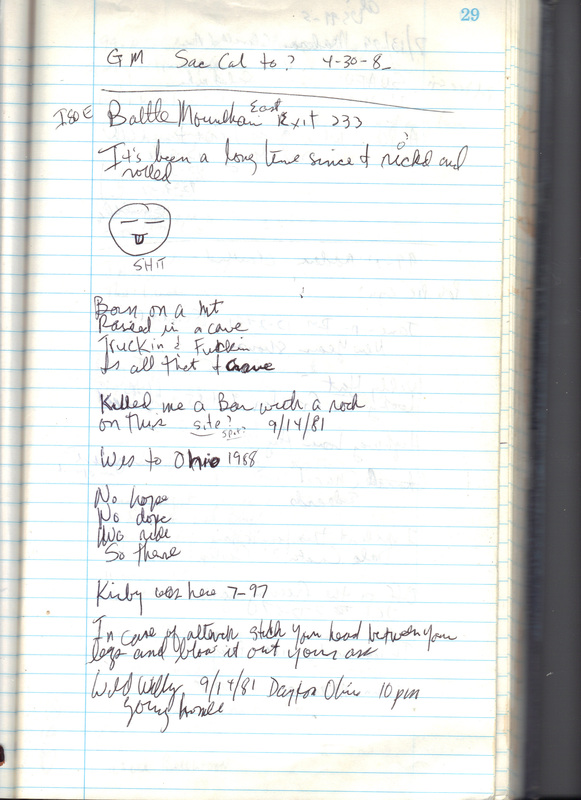 29
GM Sac Cal to? 4-30-8
I80E Battle Mountain East Exit 233
It's been a long time since I rick'd and
?
rolled
SHIT
Born on a mt
Raised in a cave
Truckin & Fuckin
Is all that I crave
Killed me a Bear with a rock
on this site? 9/14/81
spot?
Wis to Ohio 1988
No hope
No dope
No ride
So there
Kirby was here 7-97
In case of attack stick your head between your
legs and blow it out your ass
Wild Willy 9/14/81 Dayton Ohio 10 pm
going home